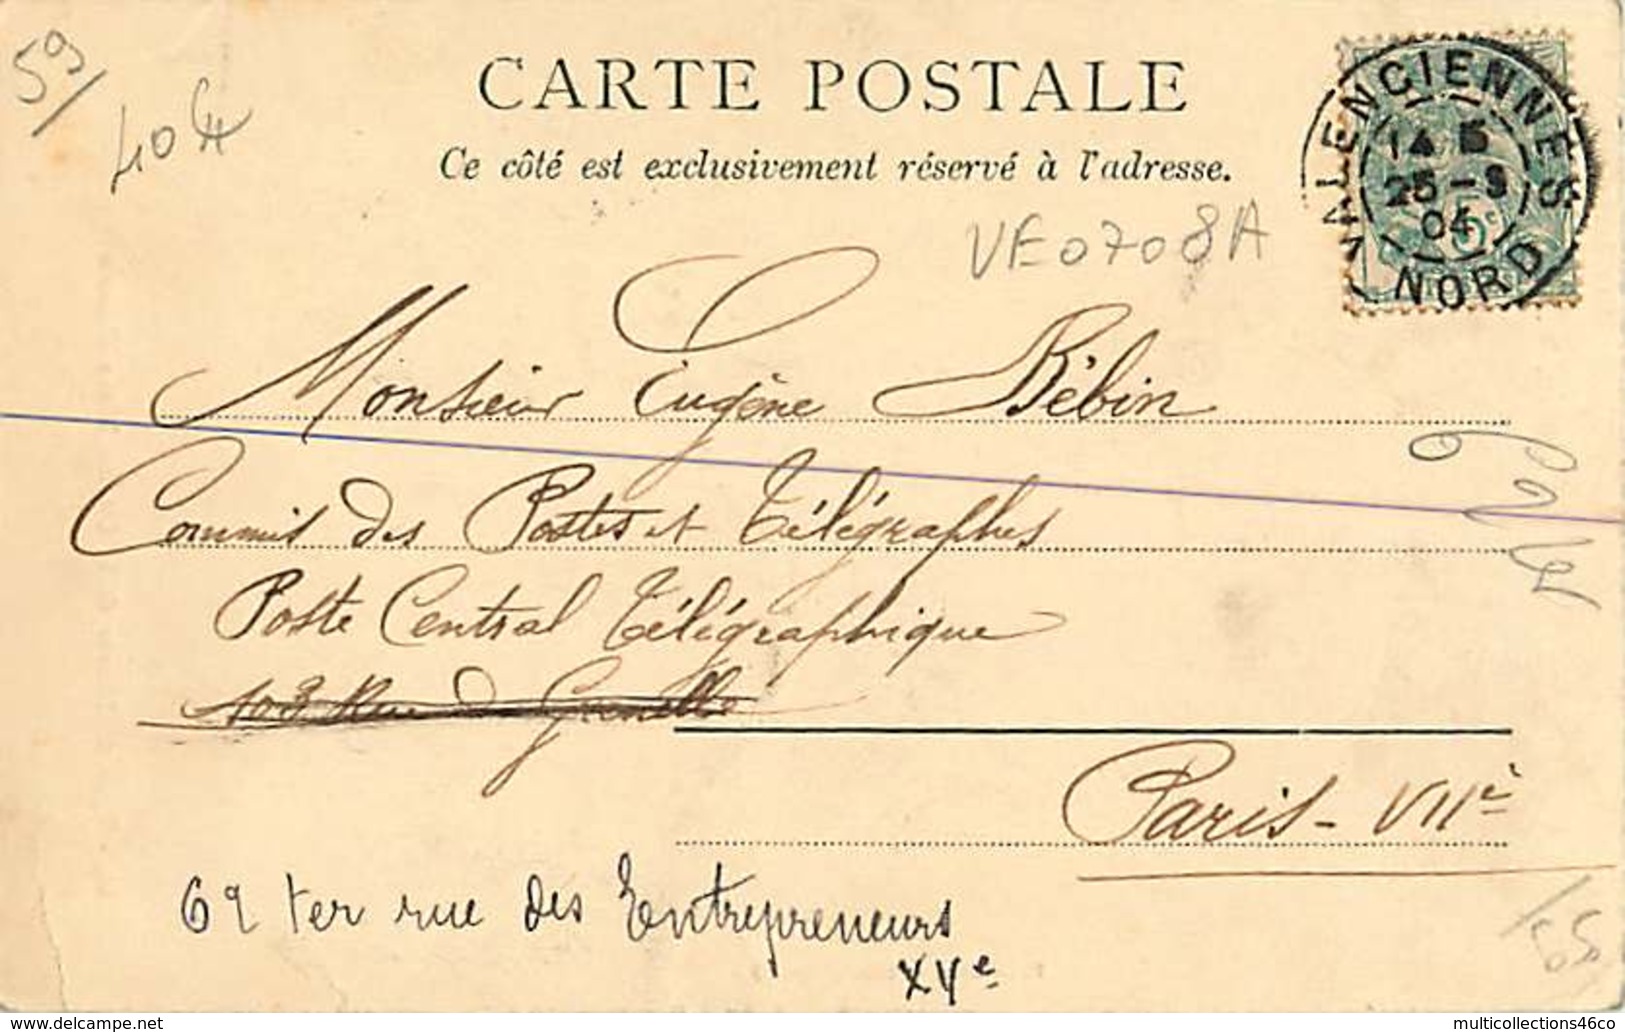 59/
40 ct
CARTE POSTALE
Ce côté est exclusivement réservé à l'adresse.
VALENCIENNES
14 5
25 - 9
04
NORD
5c
VE0708A
Monsieur Eugène Bébin
Commis des Postes et Télégraphes
Poste Central Télégraphique
103 Rue de Grenelle
Paris - VIIè
69 ter rue des Entrepreneurs
XVe
delcampe.net
multicollections46co